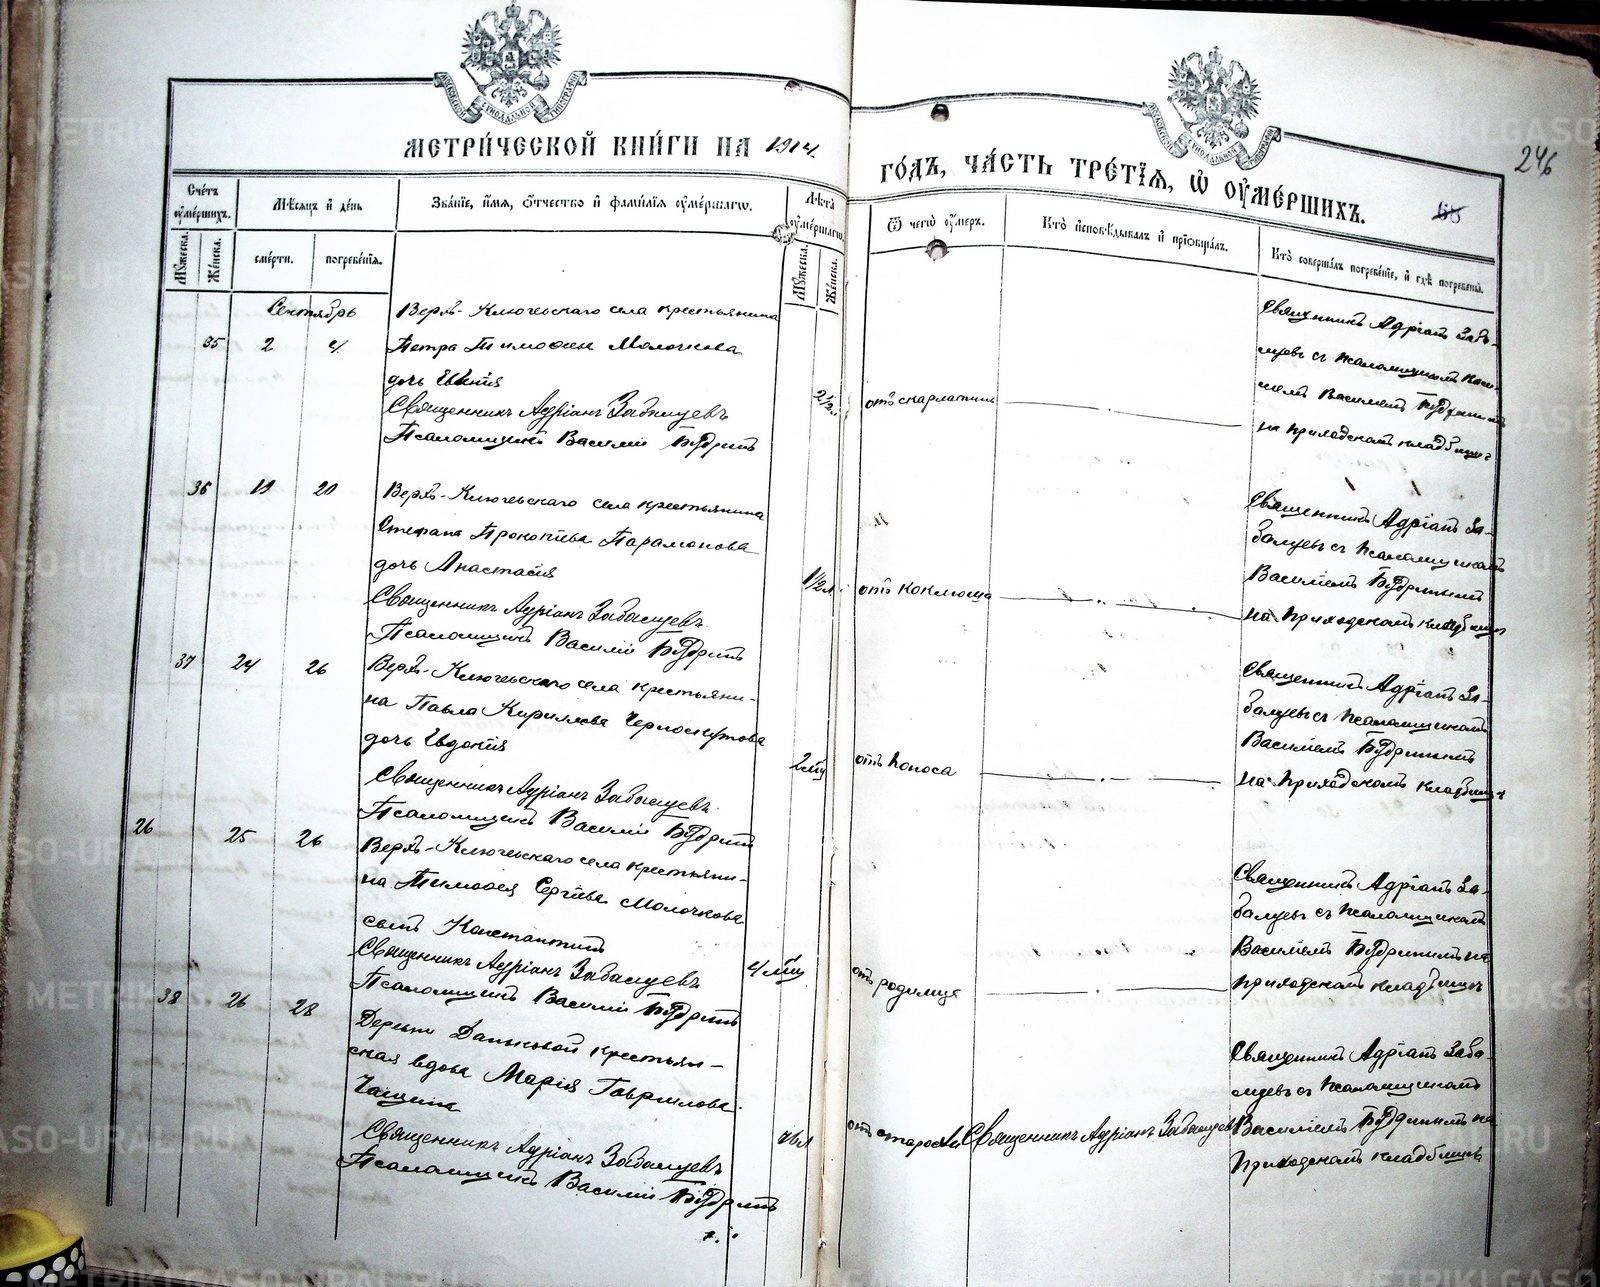 МЕТРИ́ЧЕСКОЙ КНИ́ГИ НА 1914.
ГО́ДЪ, ЧА́СТЬ ТРЕ́ТІѦ, Ѡ ОУМЕ́РШИХЪ.
246
Сче́тъ оумершихъ.
Мѣсяцъ и день
Зва́ніе, и́мя, о́тчество и фами́лія оуме́ршагѡ.
Лѣта оумершагѡ.
Ѿ чегѡ̀ оу́меръ.
Кто̀ исповѣдывалъ и прїобща́лъ.
Кто̀ соверша́лъ погребе́ніе, и гдѣ̀ погребены̀.
Мужеска.
Женска.
сме́рти.
погребе́нїя.
Мужеска.
Женска.
Сентябрь
35 2 4
Верхъ-Ключевскаго села крестьянина
Петра Тимофеева Молочкова
дочь Евгенія
Священникъ Адріанъ Забалуевъ
Псаломщикъ Василій Будринъ
2½ л
отъ скарлатины
Священникъ Адріанъ Заба-
луевъ съ псаломщикомъ Васи-
ліемъ Будринымъ
на приходскомъ кладбищѣ
36 19 20
Верхъ-Ключевскаго села крестьянина
Стефана Прокопіева Парамонова
дочь Анастасія
Священникъ Адріанъ Забалуевъ
Псаломщикъ Василій Будринъ
1½ л.
отъ коклюша
Священникъ Адріанъ За-
балуевъ съ псаломщикомъ
Василіемъ Будринымъ
на приходскомъ кладбищѣ
37 24 26
Верхъ-Ключевскаго села крестьяни-
на Павла Кириллова Черноскутова
дочь Евдокія
Священникъ Адріанъ Забалуевъ
Псаломщикъ Василій Будринъ
2 мц
отъ поноса
Священникъ Адріанъ За-
балуевъ съ псаломщикомъ
Василіемъ Будринымъ
на приходскомъ кладбищѣ
26 25 26
Верхъ-Ключевскаго села крестьяни-
на Тимофея Сергіева Молочкова
сынъ Константинъ
Священникъ Адріанъ Забалуевъ
Псаломщикъ Василій Будринъ
4 мц
отъ родимца
Священникъ Адріанъ За-
балуевъ съ псаломщикомъ
Василіемъ Будринымъ на
приходскомъ кладбищѣ
38 26 28
Деревни Даньковой крестьян-
ская вдова Марія Гаврилова
Чащина
Священникъ Адріанъ Забалуевъ
Псаломщикъ Василій Будринъ
отъ старости
Священникъ Адріанъ Забалуевъ
Священникъ Адріанъ Заба-
луевъ съ псаломщикомъ
Василіемъ Будринымъ на
приходскомъ кладбищѣ
METRIKI.GASO-URAL.RU